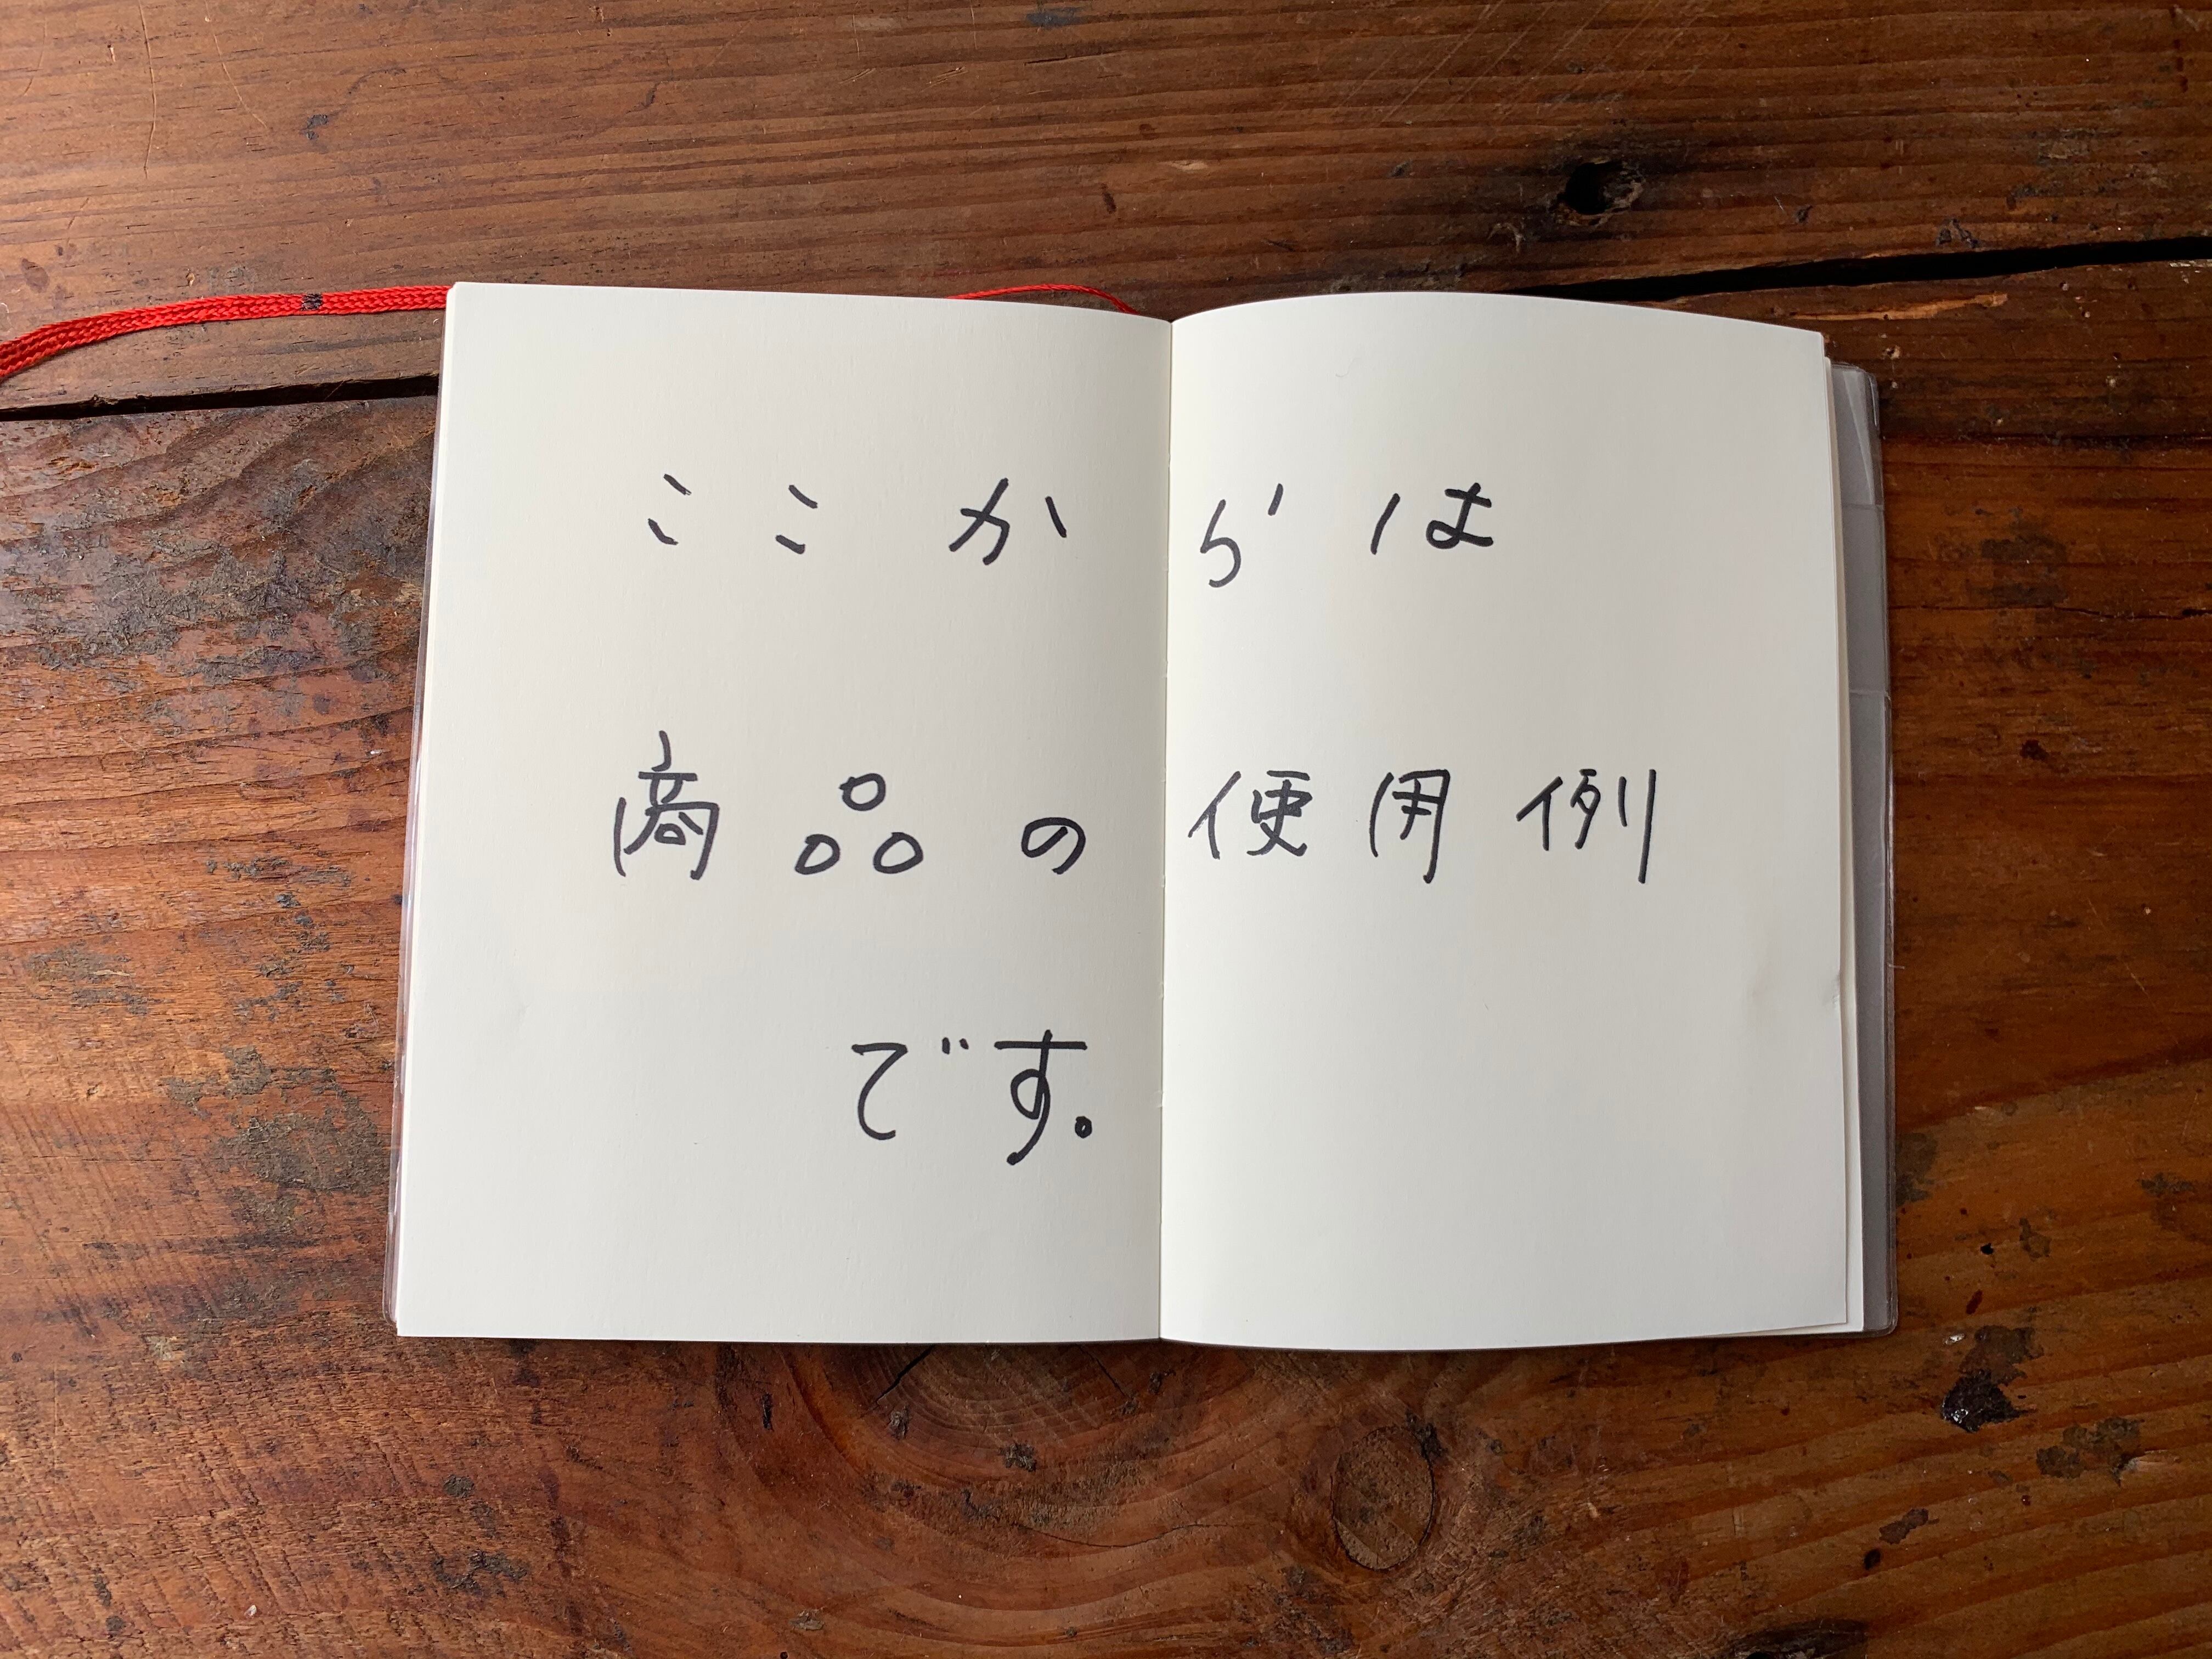 ここからは
商品の使用例
です。